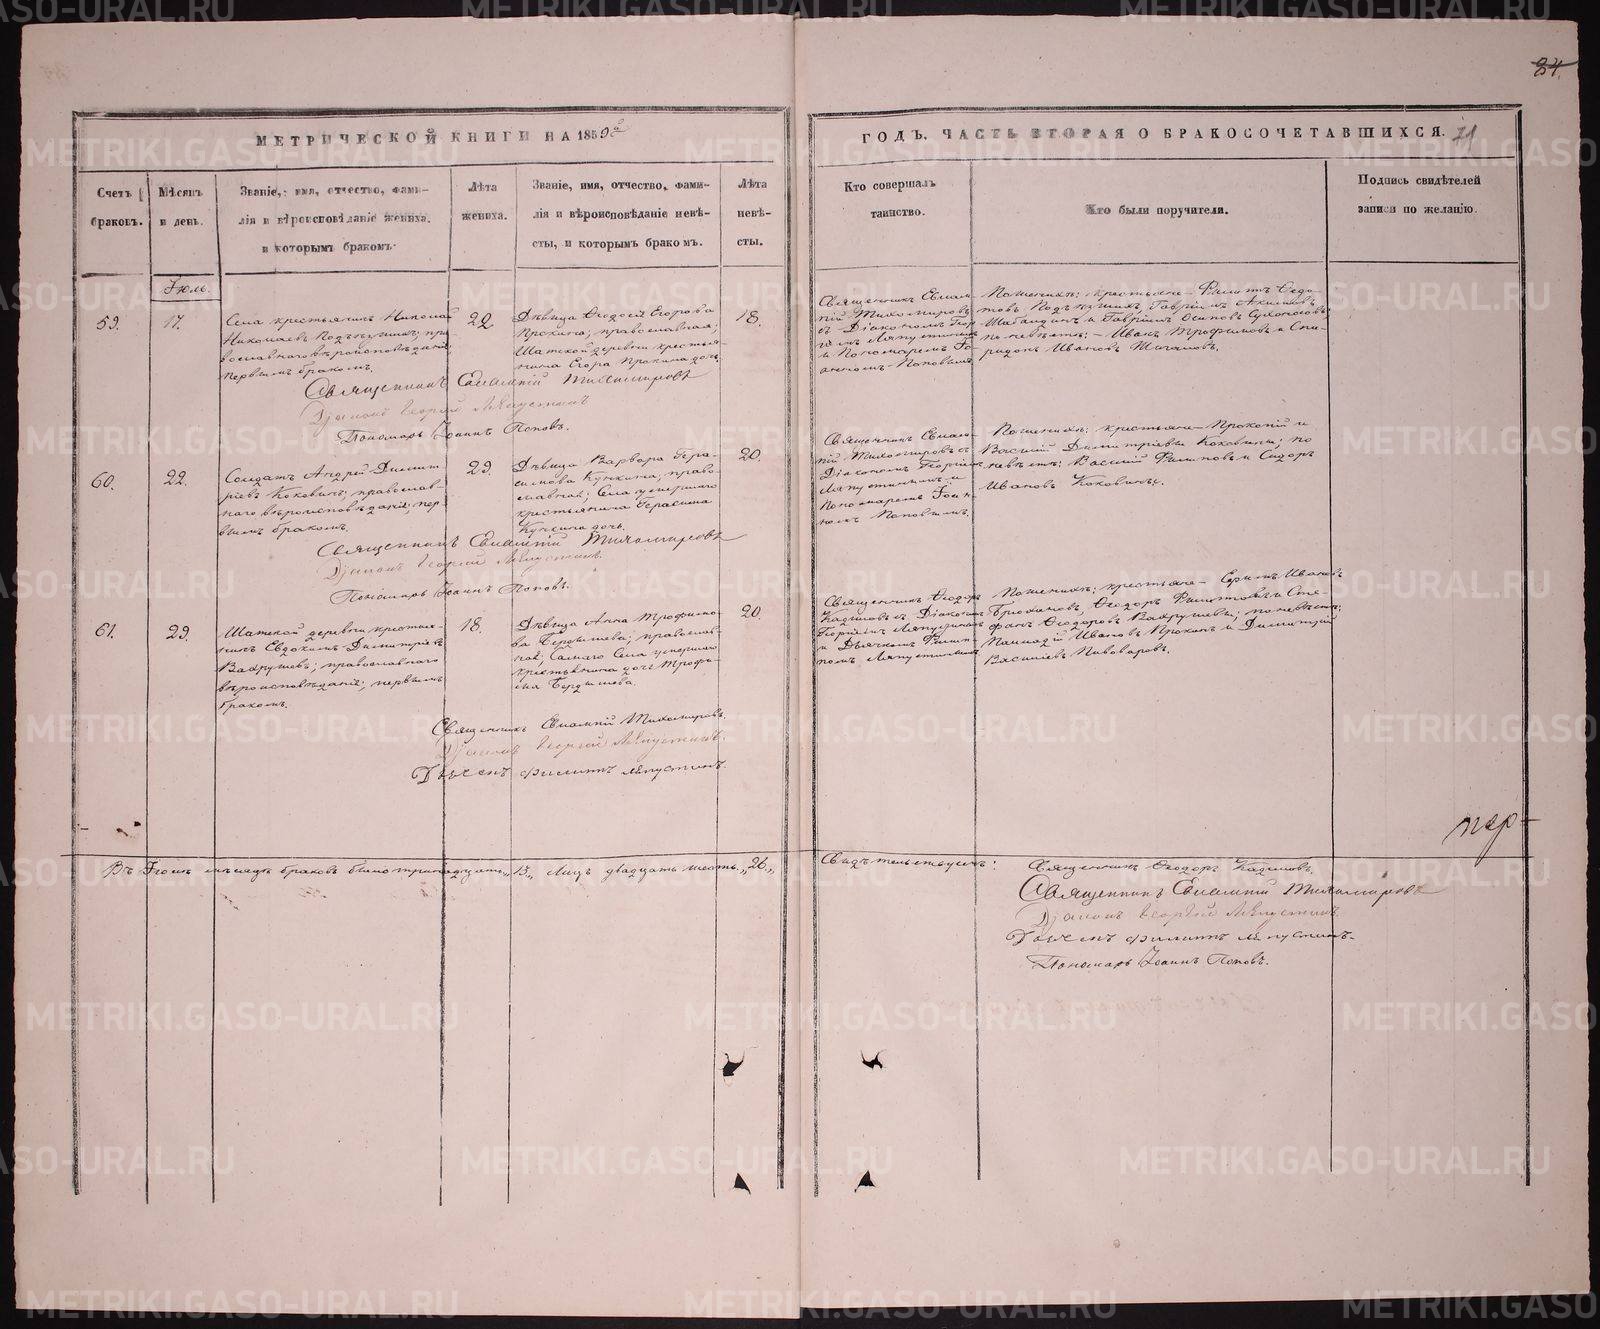 84.
МЕТРИЧЕСКОЙ КНИГИ НА 1859й
ГОДЪ. ЧАСТЬ ВТОРАЯ О БРАКОСОЧЕТАВШИХСЯ. 71
Счетъ
браковъ.
Мѣсяцъ
и день.
Званіе, имя, отчество, фами-
лія и вѣроисповѣданіе жениха.
и которымъ бракомъ.
Лѣта
жениха.
Званіе, имя, отчество, фами-
лія и вѣроисповѣданіе невѣ-
сты, и которымъ бракомъ.
Лѣта
невѣ-
сты.
Кто совершалъ
таинство.
Кто были поручители.
Подпись свидѣтелей
записи по желанію.
Іюль.
59.
17.
Села крестьянинъ Николай
Николаевъ пра-
вославнаго вѣроисповѣданія,
первымъ бракомъ.
22
Дѣвица Ѳеодосія Егорова
Прокина; православная;
Шатской деревни крестья-
нина Егора Прокина дочь.
18.
Священникъ Евлам-
пій Тихомировъ
съ Діакономъ Геор-
гіемъ Ляпустинымъ
и Пономаремъ Іо-
анномъ Поповымъ
По женихѣ: крестьяне Филиппъ Ѳедо-
товъ Гавріилъ
и Гавріилъ Осиповъ
по невѣстѣ: Иванъ Трофимовъ и Спи-
ридонъ Ивановъ
Священникъ Евлампій Тихомировъ
Діаконъ Георгій Ляпустинъ
Пономарь Іоаннъ Поповъ.
60.
22.
Солдатъ Андрей Димит-
ріевъ Коковинъ; православ-
наго вѣроисповѣданія, пер-
вымъ бракомъ.
29.
Дѣвица Варвара Гера-
симова Кункина, право-
славная; Села умершаго
крестьянина Герасима
Кункина дочь.
20
Священникъ Евлам-
пій Тихомировъ съ
Діакономъ Георгіемъ
Ляпустинымъ и
Пономаремъ Іоан-
номъ Поповымъ.
По женихѣ: крестьяне Прокопій и
Василій Димитріевы Коковины; по
невѣстѣ: Василій Филиповъ и Сидоръ
Ивановъ Коковины.
Священникъ Евлампій Тихомировъ
Діаконъ Георгій Ляпустинъ
Пономарь Іоаннъ Поповъ.
61.
29.
Шатской деревни крестья-
нинъ Евдокимъ Димитріевъ
Вахрушевъ; православнаго
вѣроисповѣданія, первымъ
бракомъ.
18.
Дѣвица Анна Трофимо-
ва Бердышева; православ-
ная; Самаго Села умершаго
крестьянина дочь Трофи-
ма Бердышева.
20.
Священникъ Ѳеодоръ
Кадешовъ съ Діакономъ
Георгіемъ Ляпустинымъ
и Дьячкомъ Филип-
помъ Ляпустинымъ
По женихѣ: крестьяне Ефимъ Ивановъ
Ѳеодоръ Филиповъ и Сте-
фанъ Ѳеодоровъ Вахрушевы; по невѣстѣ:
Ивановъ Прокинъ и Димитрій
Василіевъ Пивоваровъ.
Священникъ Евлампій Тихомировъ.
Діаконъ Георгій Ляпустинъ.
Дьячекъ Филиппъ Ляпустинъ.
Въ Іюлѣ мѣсяцѣ браковъ было тринадцать „13„ Лицъ двадцать шесть „26„
Свидѣтельствуемъ:
Священникъ Ѳеодоръ Кадешовъ.
Священникъ Евлампій Тихомировъ
Діаконъ Георгій Ляпустинъ.
Дьячекъ Филиппъ Ляпустинъ.
Пономарь Іоаннъ Поповъ.
METRIKI.GASO-URAL.RU